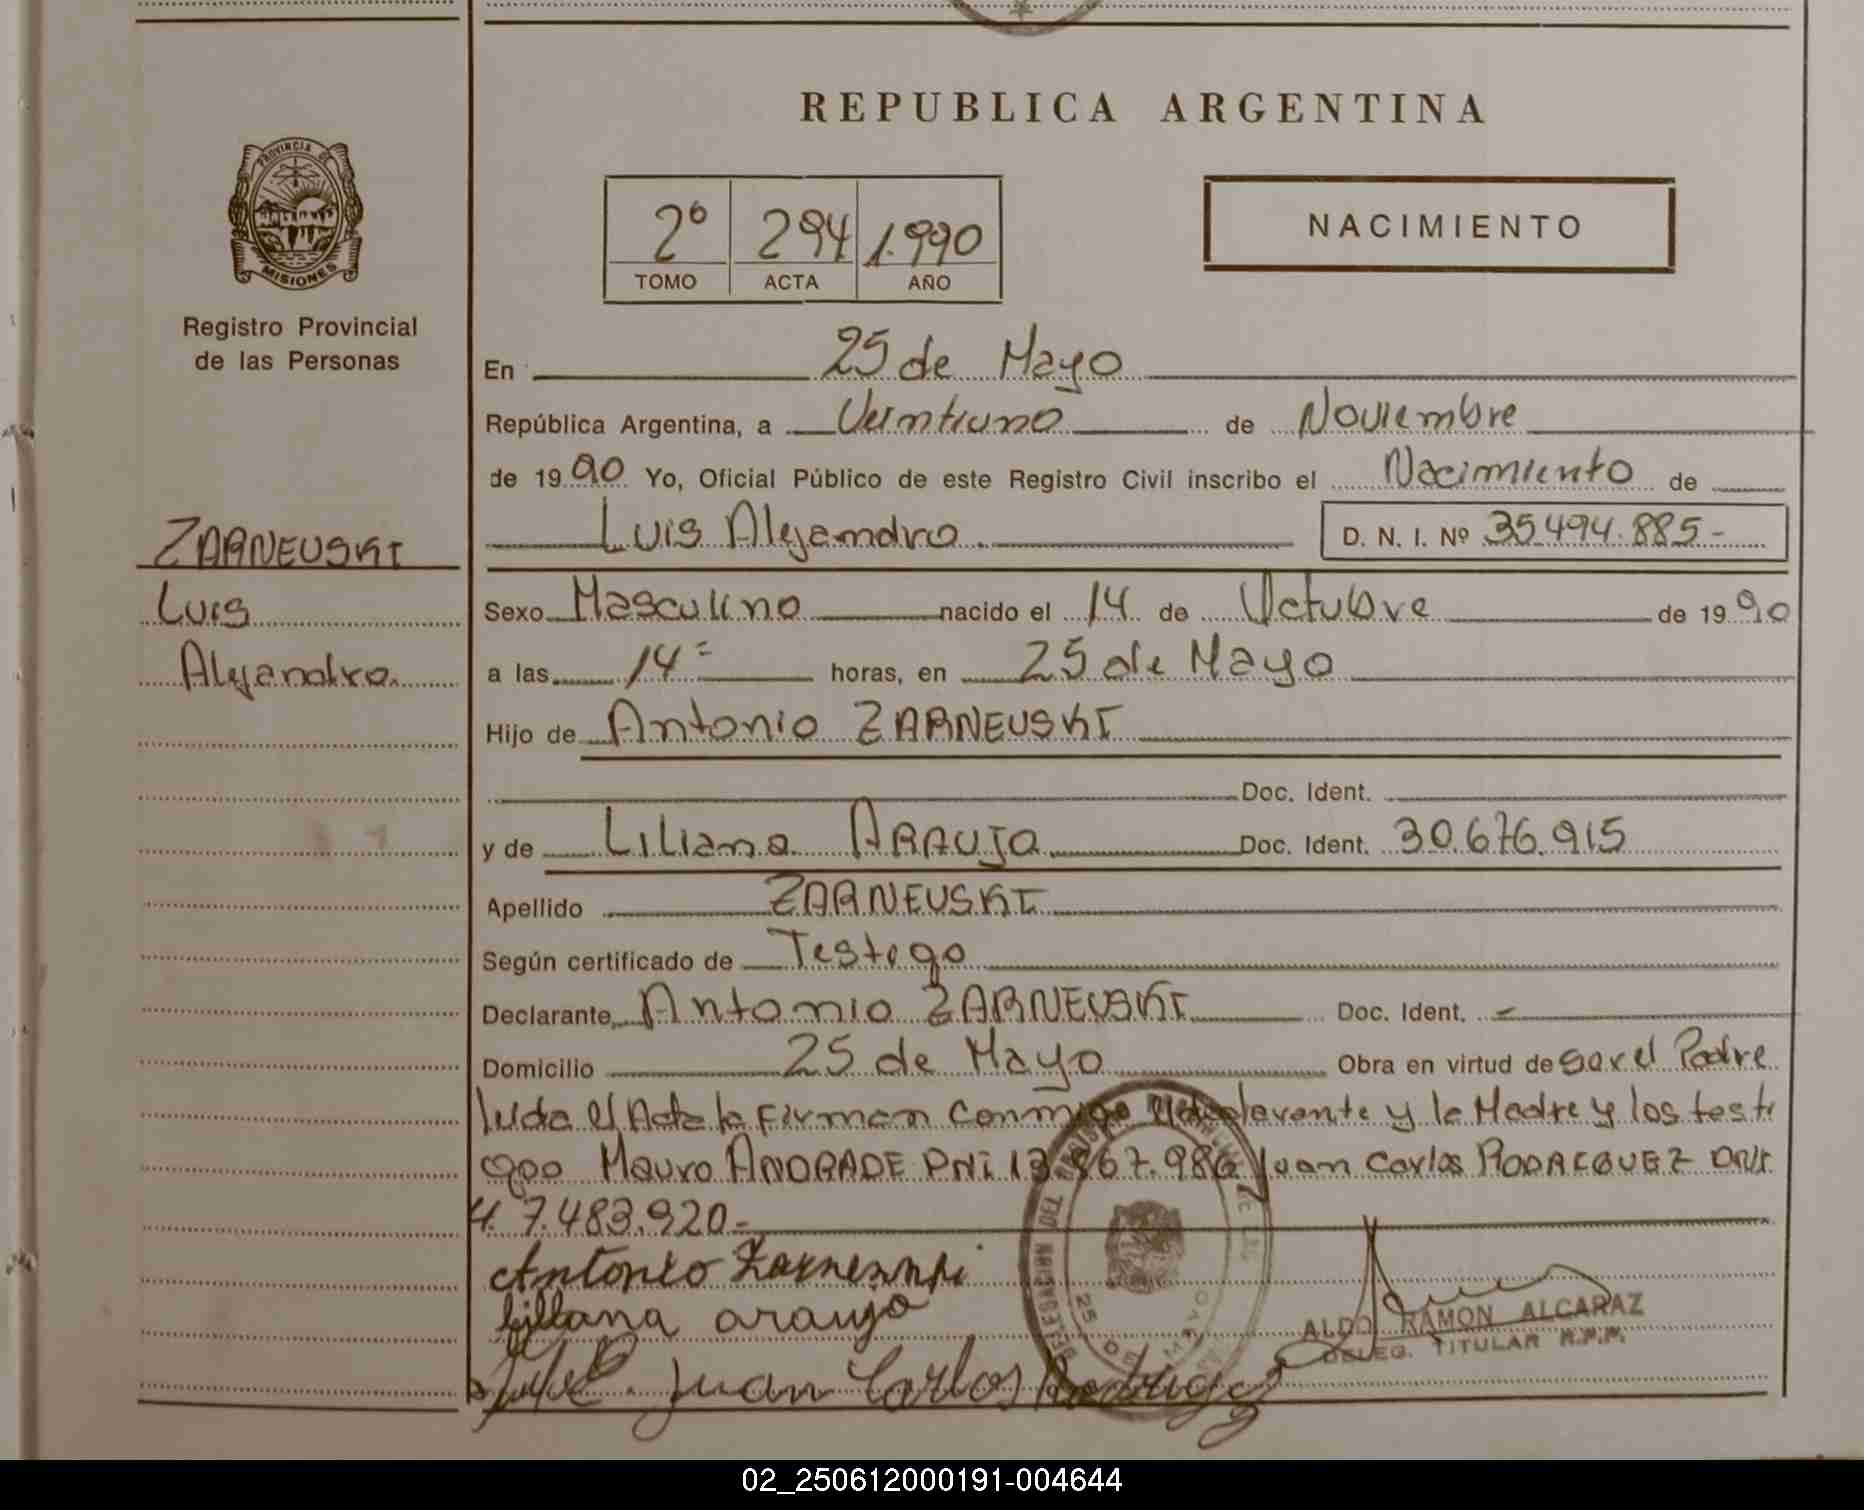 REPUBLICA ARGENTINA
PROVINCIA DE
MISIONES
Registro Provincial
de las Personas
2º 294 1.990
TOMO ACTA AÑO
NACIMIENTO
En 25 de Mayo
República Argentina, a Veintiuno de Noviembre
de 1990 Yo, Oficial Público de este Registro Civil inscribo el Nacimiento de
Luis Alejandro. D. N. I. Nº 35.494.885-
ZARNEUSKI
Luis
Alejandro.
Sexo Masculino nacido el 14 de Octubre de 1990
a las 14= horas, en 25 de Mayo
Hijo de Antonio ZARNEUSKI
Doc. Ident.
y de Liliana ARAUJO Doc. Ident. 30.676.915
Apellido ZARNEUSKI
Según certificado de Testigo
Declarante Antonio ZARNEUSKI Doc. Ident. -
Domicilio 25 de Mayo Obra en virtud de ser el Padre
leida el Acta la Firman conmigo el declarante y la Madre y los testi
gos Mauro ANDRADE DNI 13.867.986 Juan Carlos RODRIGUEZ DNI
7.483.920.-
Antonio
liliana araujo
Juan Carlos
ALDO RAMON ALCARAZ
DELEG. TITULAR R.P.P.
25 DE MAYO
02_250612000191-004644